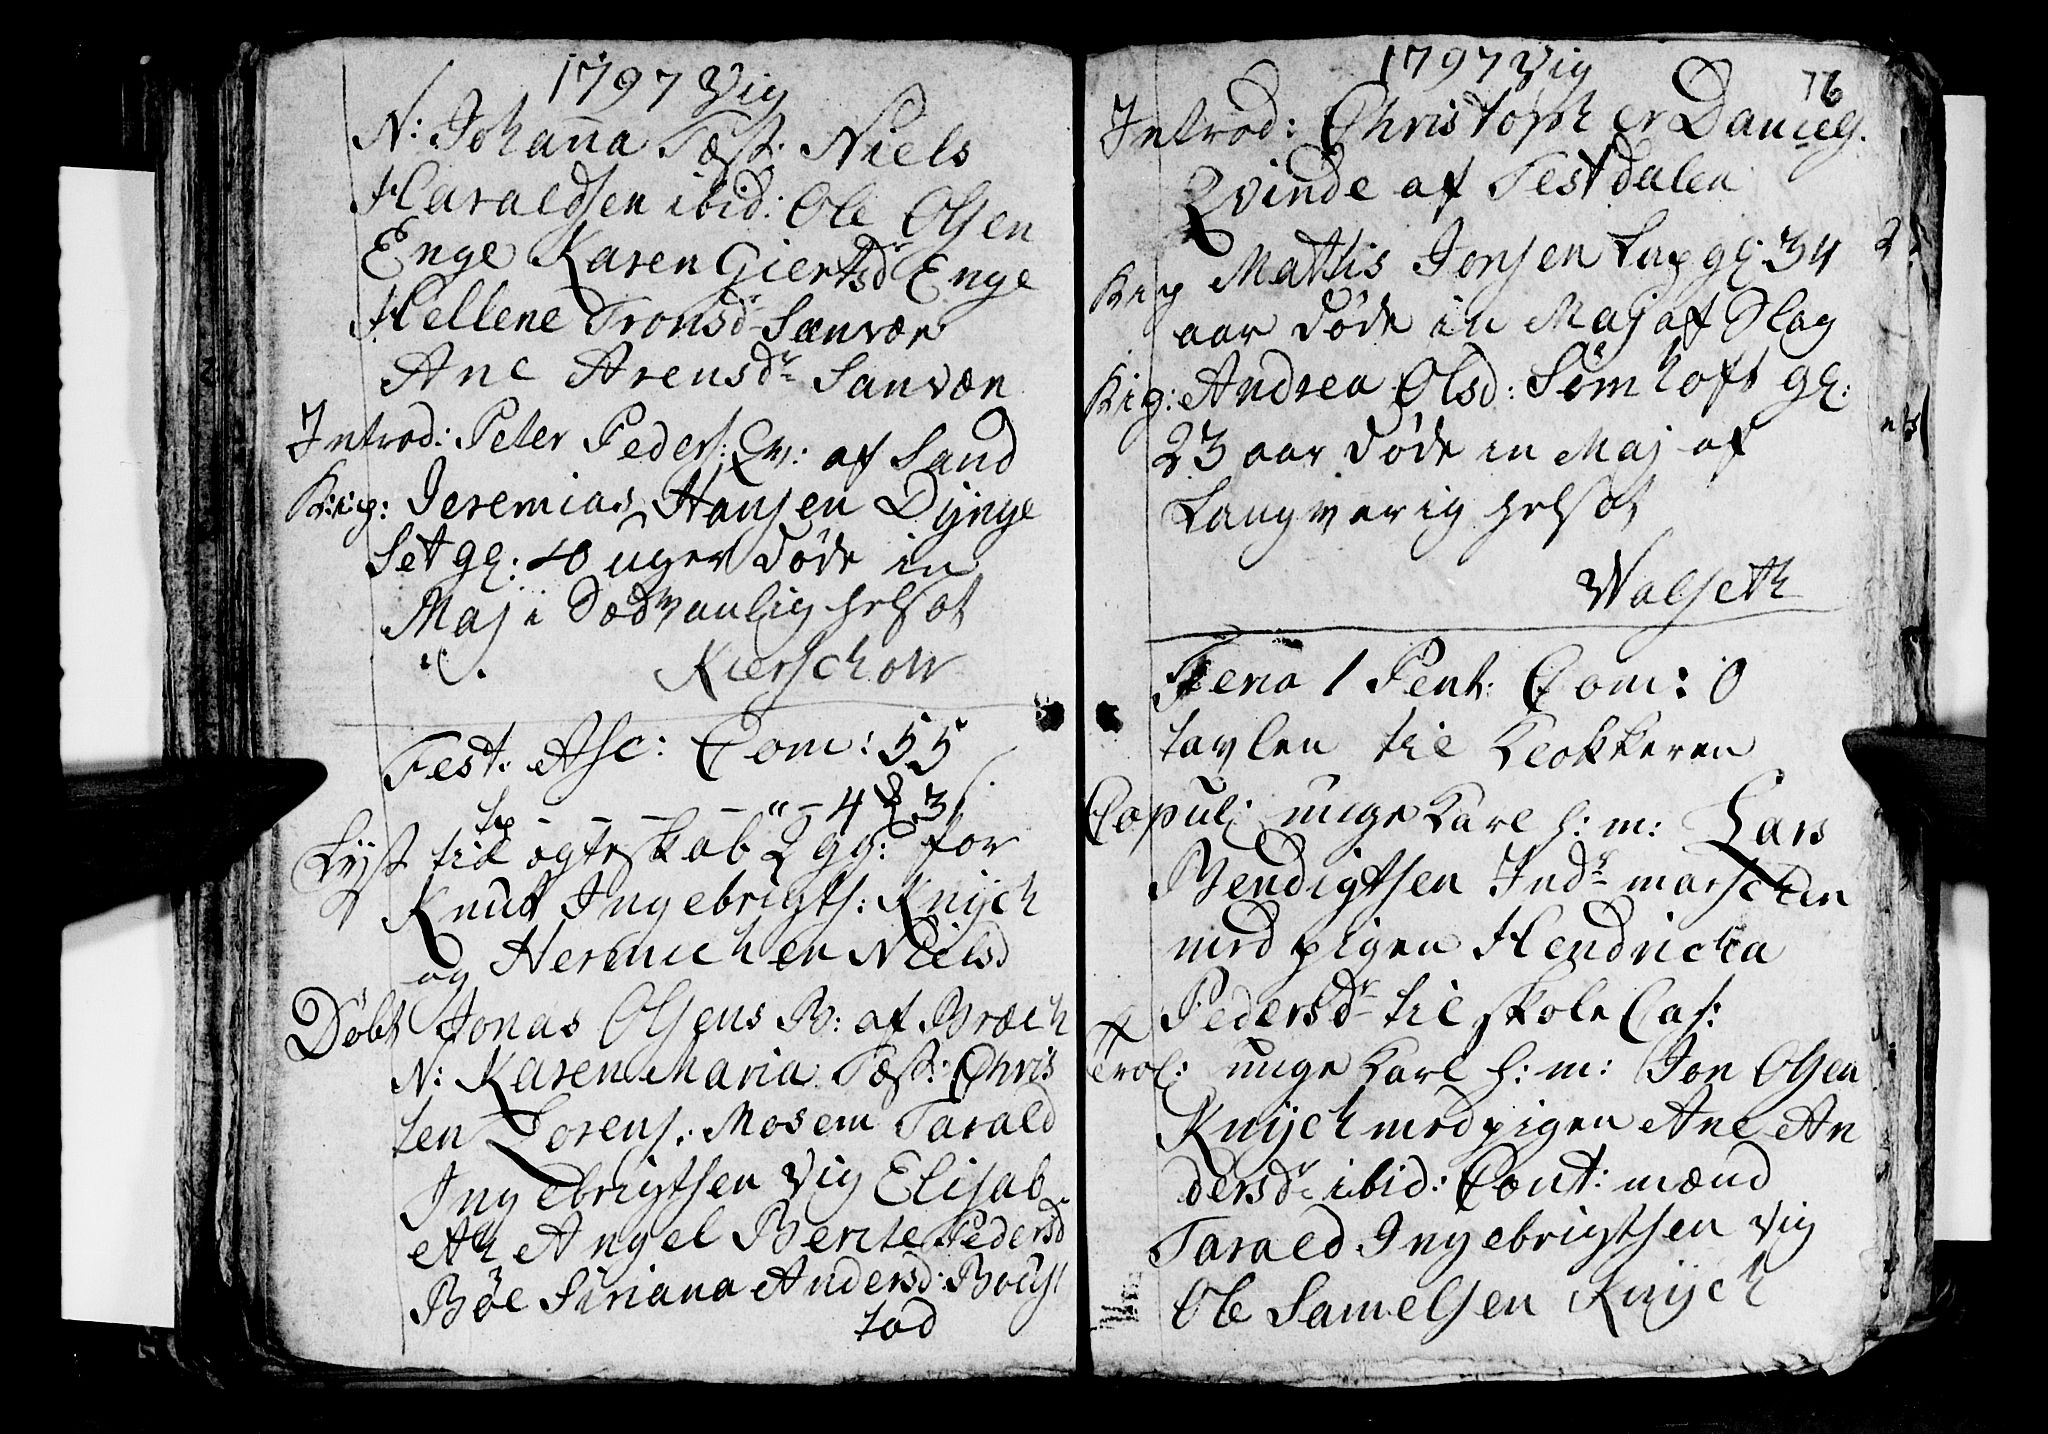 1797 Vig
N: Johanna Test. Niels
Haraldsen ibid: Ole Olsen
Enge Karen Giertsdr Enge
Hellene Tronsdr Sanvær
Ane Arensdr Sanvær
Introd: Peter Peders: Qv: af Sand
K:i:g: Jeremias Hansen Dynge
Set gl: 10 uger døde in
Maj i Sædvanlig helsot
Kierschow
Fest. Asc: Com: 55
4 & 3
Lyst til ægteskab 2 gg: for
Knut Ingebrigts: Knych
og Hermichen Nielsd
Døbt Jonas Olsens B: af Bræch
N: Karen Maria Test: Chris
ten Lorens. Mosem Tarald
Ingebrigtsen Vig Elisab
eth Angel Berite Pedersd
Bøe Siriana Andersd: Boest
tad
1797 Vig
76
Introd: Christopher Daniels.
Qvinde af Testdalen
Kig Mathis Jonsen Lap gl: 34
aar døde in Maj af Slag
Kig: Andrea Olsd: Sømhoft gl:
23 aar døde in Maj af
Langvarig helsot
Walseth
Feria 1 Pent: Com: 0
tavlen til Klokkeren
Copul: unge Karl h: m: Lars
Bendigtsen Indr marschen
med pigen Hendricka
Pedersdr til skole Cas:
Trol: unge Karl h: m: Jon Olsen
Knych med pigen Ane An
dersdr ibid: Cout: mænd
Tarald Ingebrigtsen Vig
Ole Samelsen Knych